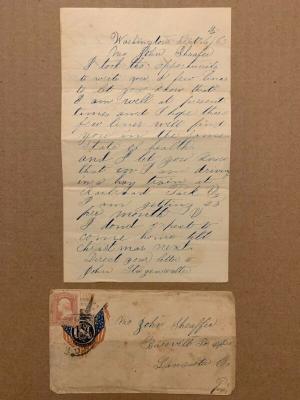 Washington
Mr John Sheaffer
I took this oppertunity
to write you a few lines
to let you know that
I am well at present
times and I hope this
few lines will find
you in the same
State of health
and I let you know
that I am driving
in a hay train
I am getting 25
per month
I dont to
come home till
Christmas next
Direct your letter to
John
Mr John Sheaffer
Lancaster Co
Pa